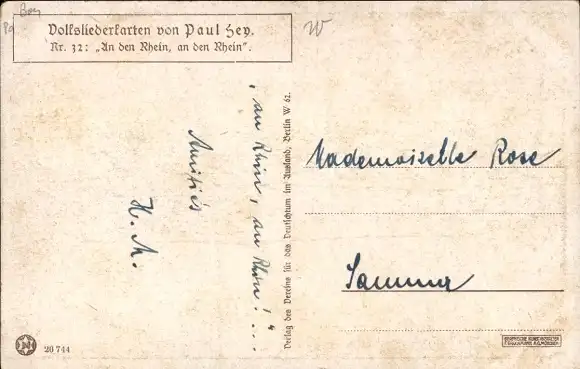 Volksliederkarten von Paul Hey.
Nr. 32: „An den Rhein, an den Rhein".
„ au Rhin, au Rhin! ..."
Amitiés
H. M.
Verlag des Vereins für das Deutschtum im Ausland, Berlin W 62.
W
Mademoiselle Rose
20 744